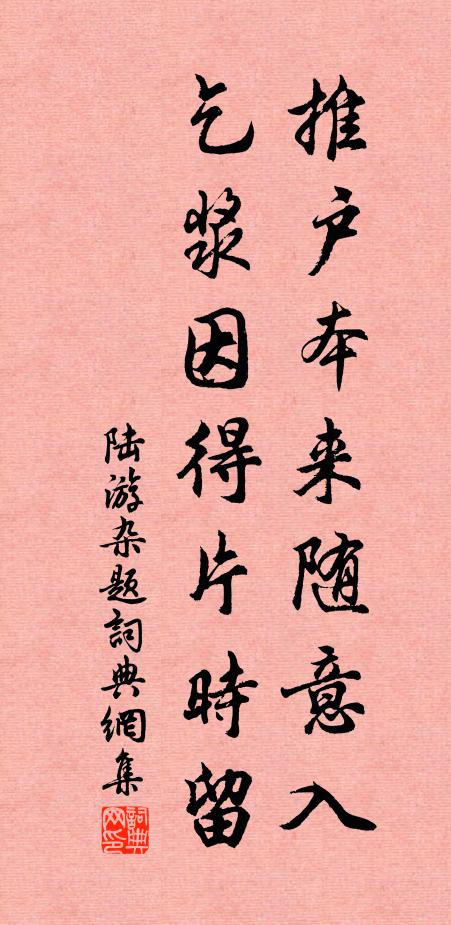 推户本来随意入
乞浆因得片時留
陆游杂题詞典網集
詞典网印